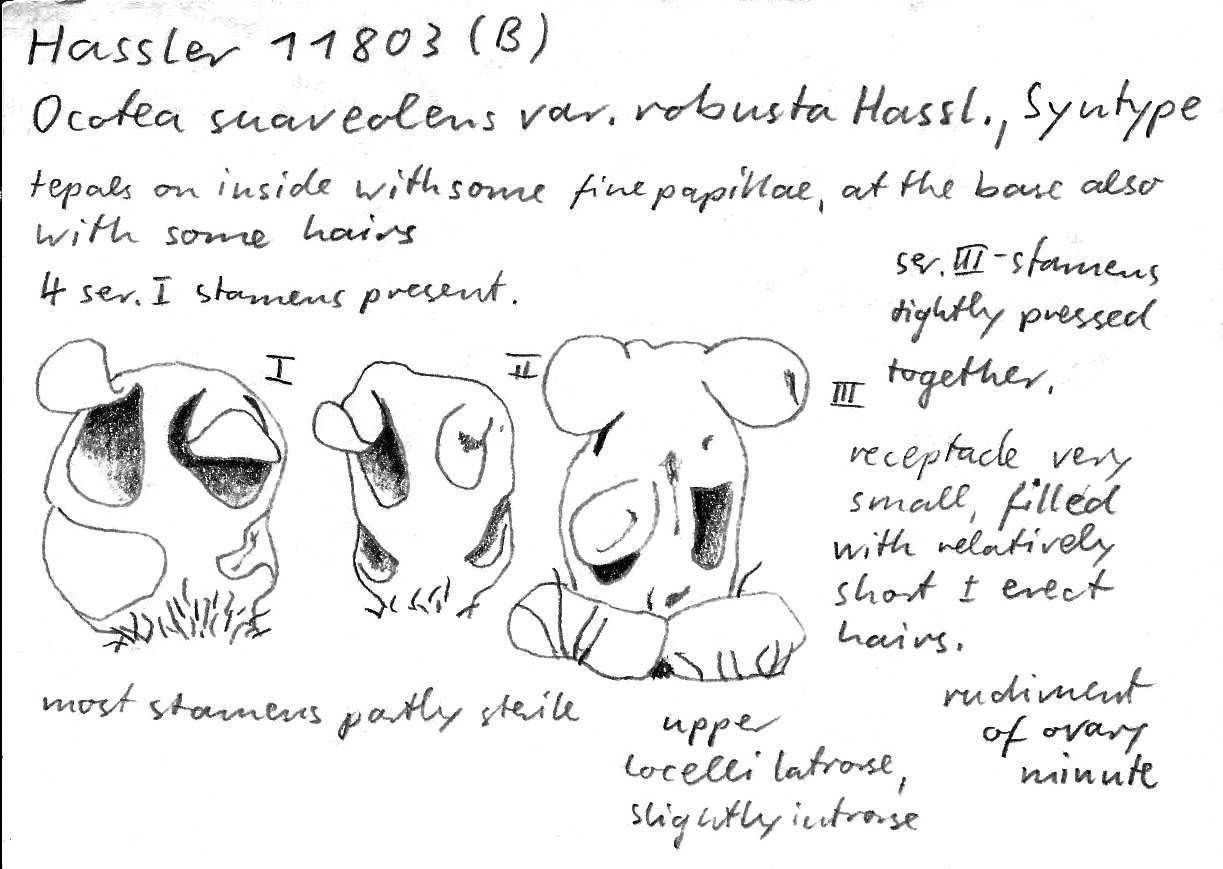 Hassler 11803 (B)
Ocotea suaveolens var. robusta Hassl., Syntype
tepals on inside with some fine papillae, at the base also
with some hairs
4 ser. I stamens present.
ser. III-stamens
tightly pressed
together.
I
II
III
receptacle very
small, filled
with relatively
short ± erect
hairs.
most stamens partly sterile
upper
locelli latrorse,
slightly introrse
rudiment
of ovary
minute